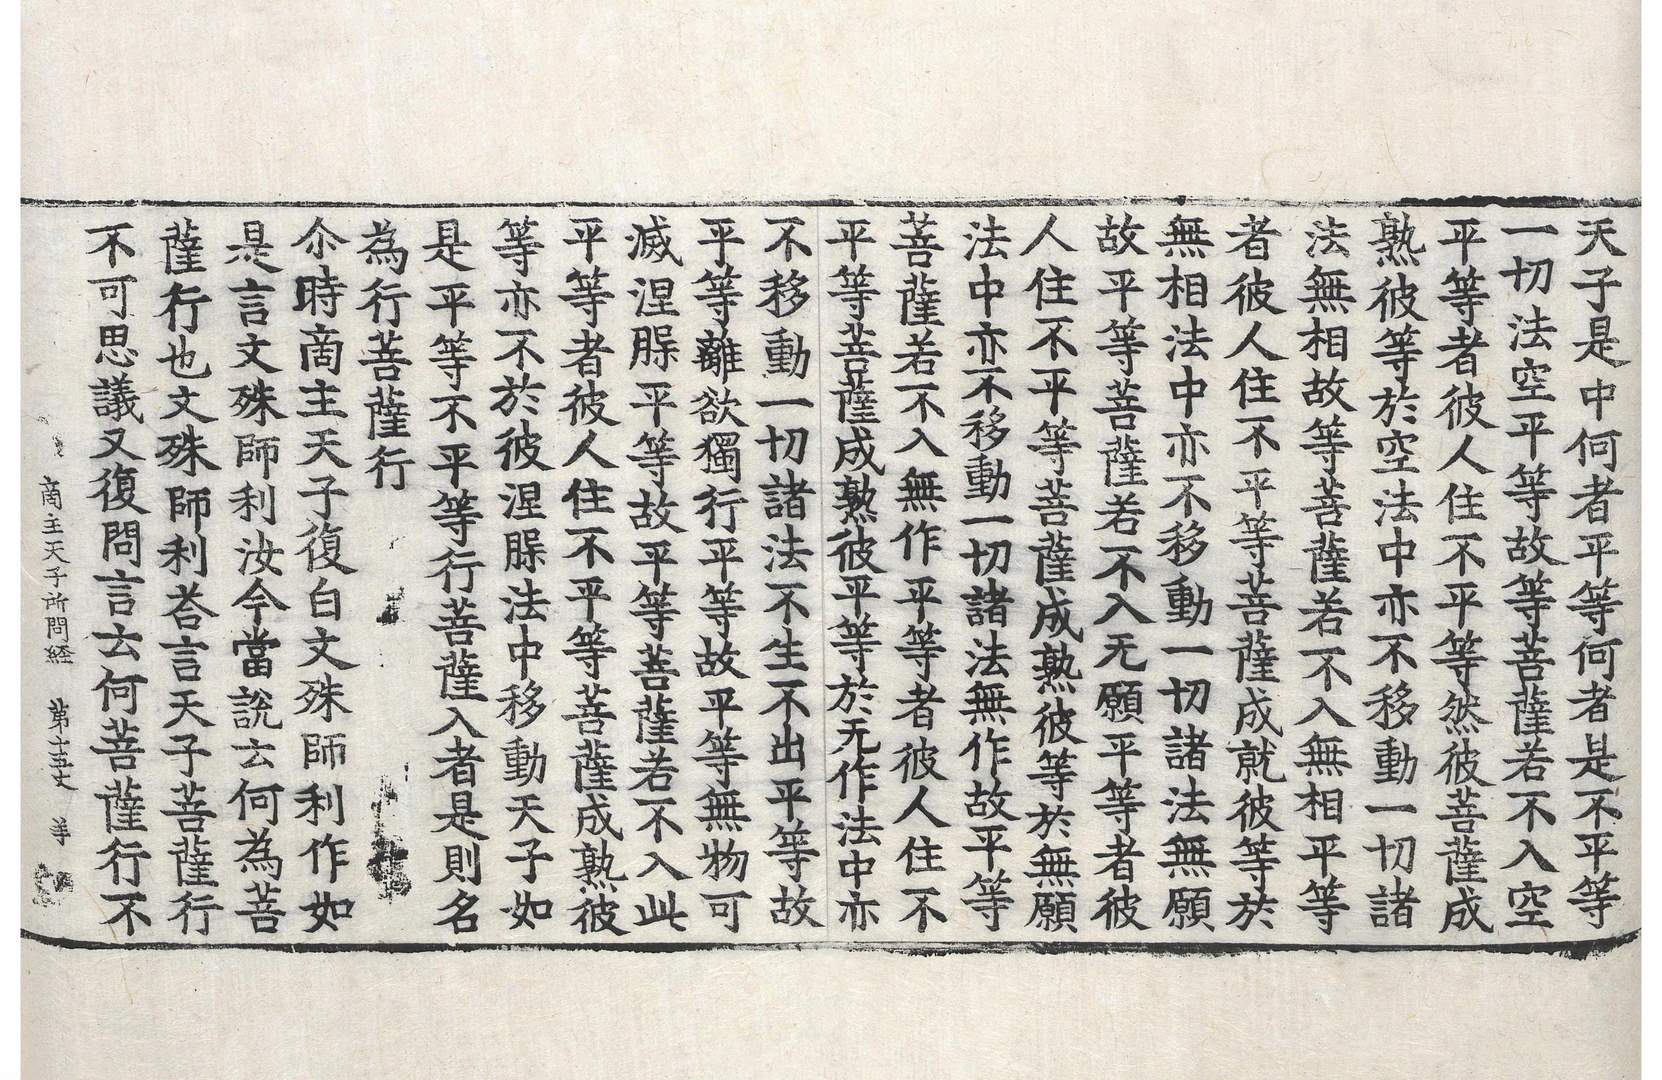 天子是中何者平等何者是不平等
一切法空平等故等菩薩若不入空
平等者彼人住不平等然彼菩薩成
熟彼等於空法中亦不移動一切諸
法無相故等菩薩若不入無相平等
者彼人住不平等菩薩成就彼等於
無相法中亦不移動一切諸法無願
故平等菩薩若不入无願平等者彼
人住不平等菩薩成熟彼等於無願
法中亦不移動一切諸法無作故平等
菩薩若不入無作平等者彼人住不
平等菩薩成熟彼平等於无作法中亦
不移動一切諸法不生不出平等故
平等離欲獨行平等故平等無物可
滅涅槃平等故平等菩薩若不入此
平等者彼人住不平等菩薩成熟彼
等亦不於彼涅槃法中移動天子如
是平等不平等行菩薩入者是則名
為行菩薩行
尒時商主天子復白文殊師利作如
是言文殊師利汝今當說云何為菩
薩行也文殊師利荅言天子菩薩行
不可思議又復問言云何菩薩行不
商主天子所問経 第十五丈 羊